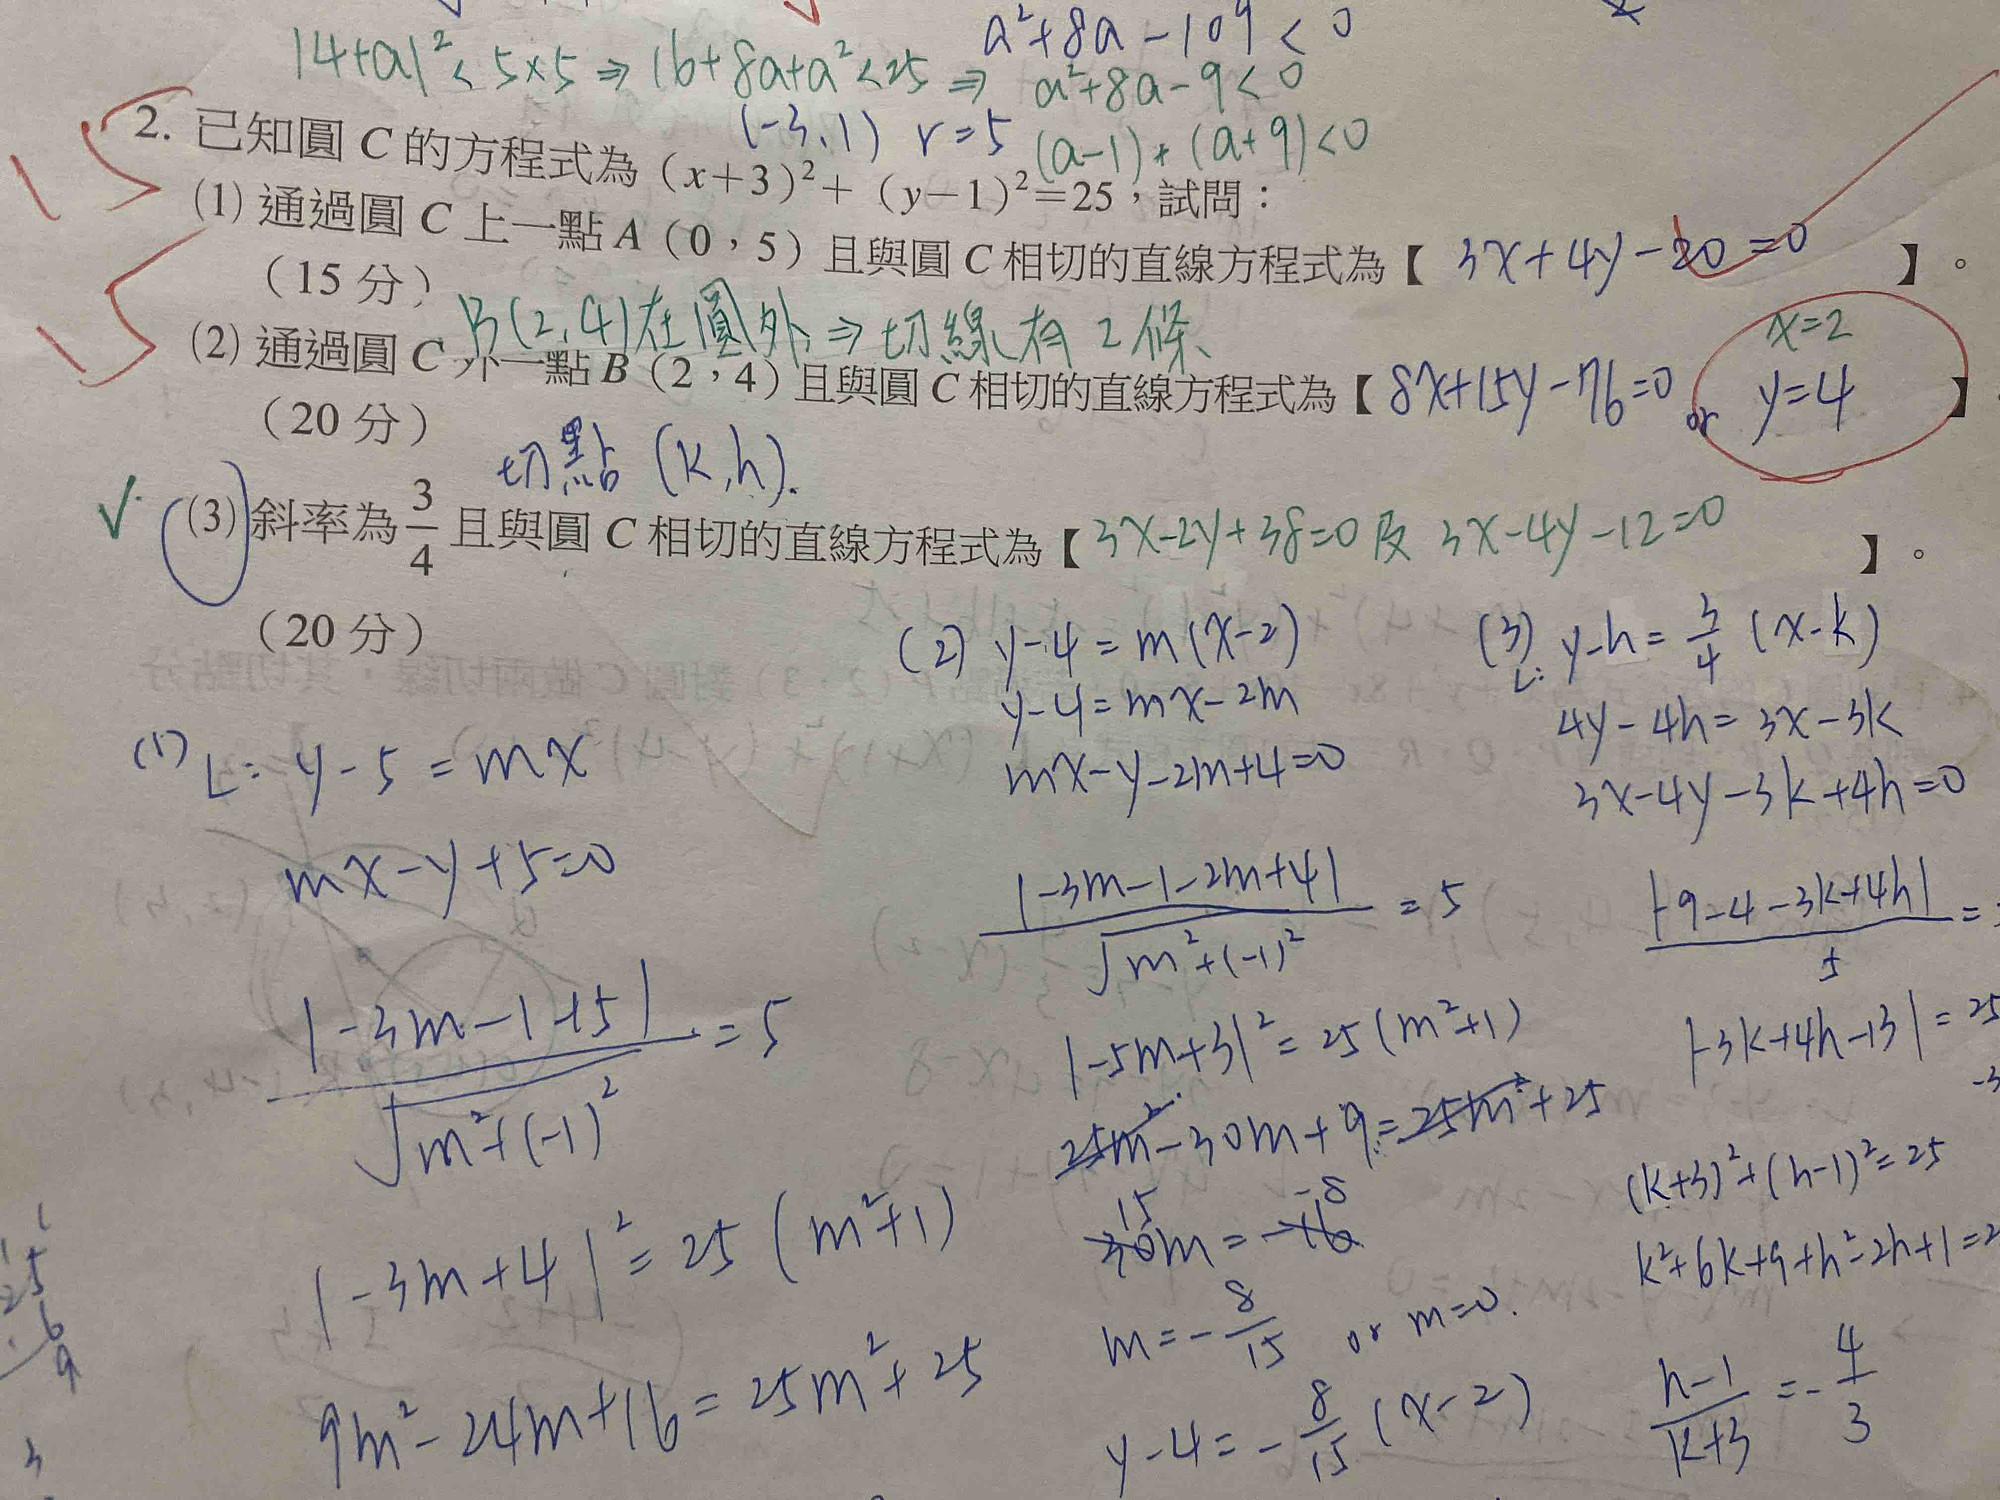 a²+8a-109<0
|4+a|²<5×5⇒16+8a+a²<25⇒ a²+8a-9<0
(-3,1) r=5 (a-1)+(a+9)<0
15
2. 已知圓 C 的方程式為 (x+3)²+(y-1)²=25,試問:
(1) 通過圓 C 上一點 A (0,5) 且與圓 C 相切的直線方程式為【 3x+4y-20=0 】。
(15 分)
B(2,4)在圓外⇒切線有2條
x=2
(2) 通過圓 C 外一點 B (2,4) 且與圓 C 相切的直線方程式為【 8x+15y-76=0 or y=4 】
(20 分)
切點 (k,h).
(3) 斜率為 3/4 且與圓 C 相切的直線方程式為【 3x-2y+38=0 及 3x-4y-12=0 】。
(20 分)
(1) L: y-5=mx
mx-y+5=0
|-3m-1+5| / √m²+(-1)² =5
|-3m+4|²=25(m²+1)
9m²-24m+16=25m²+25
(2) y-4=m(x-2)
y-4=mx-2m
mx-y-2m+4=0
|-3m-1-2m+4| / √m²+(-1)² =5
|-5m+3|²=25(m²+1)
25m²-30m+9=25m²+25
15 -8
30m=-16
m=-8/15 or m=0.
y-4=-8/15(x-2)
(3) L: y-h=3/4(x-k)
4y-4h=3x-3k
3x-4y-3k+4h=0
|-9-4-3k+4h| / 5 =
|-3k+4h-13|=25
(k+3)²+(h-1)²=25
k²+6k+9+h²-2h+1=2
h-1/k+3=-4/3